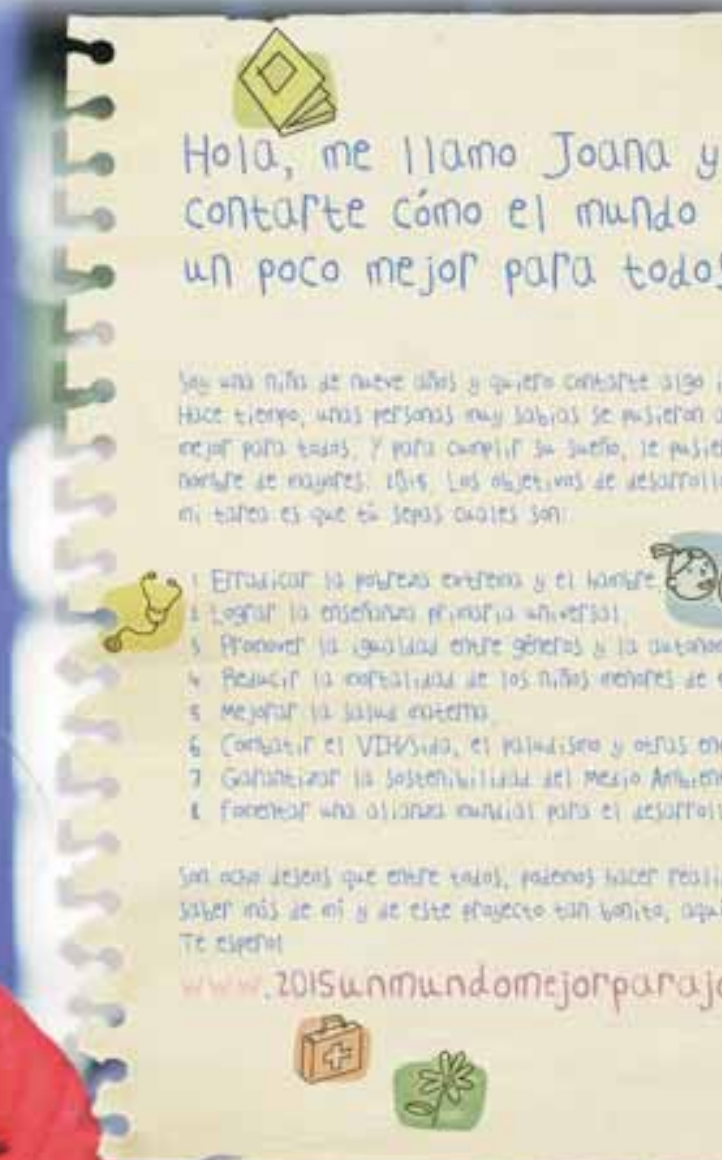 Hola, me llamo Joana y
contarte cómo el mundo
un poco mejor para todos
Soy una niña de nueve años y quiero contarte algo
Hace tiempo, unas personas muy sabias se pusieron
mejor para todos. Y para cumplir su sueño, le
nombre de mayores: 2015. Los objetivos de
mi tarea es que tú sepas cuales son:
1 Erradicar la pobreza extrema y el hambre
2 Lograr la enseñanza primaria universal.
3 Promover la igualdad entre géneros y la
4 Reducir la mortalidad de los niños menores de
5 Mejorar la salud materna.
6 Combatir el VIH/Sida, el paludismo y otras
7 Garantizar la sostenibilidad del Medio
8 Fomentar una alianza mundial para el
Son ocho deseos que entre todos, podemos hacer
saber más de mí y de este proyecto tan bonito,
Te espero!
www.2015unmundomejorparajo